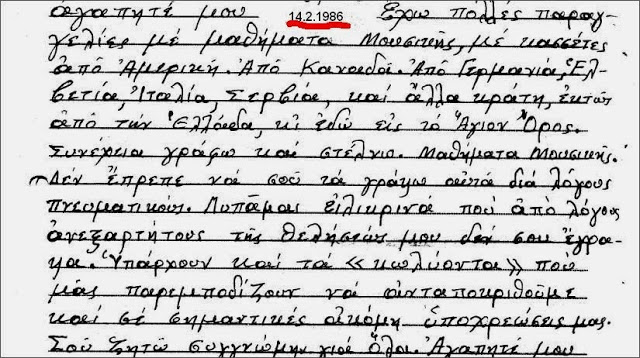 ἀγαπητέ μου 14.2.1986 Ἔχω πολλές παραγ-
γελίες μέ μαθήματα Μουσικῆς, μέ κασσέτες
ἀπό Ἀμερική. Ἀπό Καναδᾶ. Ἀπό Γερμανία, Ἑλ-
βετία, Ἰταλία, Σερβία, καί ἄλλα κράτη, ἐκτός
ἀπό τήν Ἑλλάδα, κι ἐδῶ εἰς τό Ἅγιον Ὄρος.
Συνέχεια γράφω καί στέλνω. Μαθήματα Μουσικῆς.
Δέν ἔπρεπε νά σοῦ τά γράψω αὐτά διά λόγους
πνευματικούς. Λυπᾶμαι εἰλικρινά πού ἀπό λόγους
ἀνεξαρτήτους τῆς θελήσεώς μου δέν σου ἔγρα-
ψα. Ὑπάρχουν καί τά «κωλύοντα» πού
μᾶς παρεμποδίζουν νά ἀνταποκριθοῦμε
καί σέ σημαντικές ἀκόμη ὑποχρεώσεις μας.
Σοῦ ζητῶ συγγνώμην γιά ὅλα. Ἀγαπητέ μου